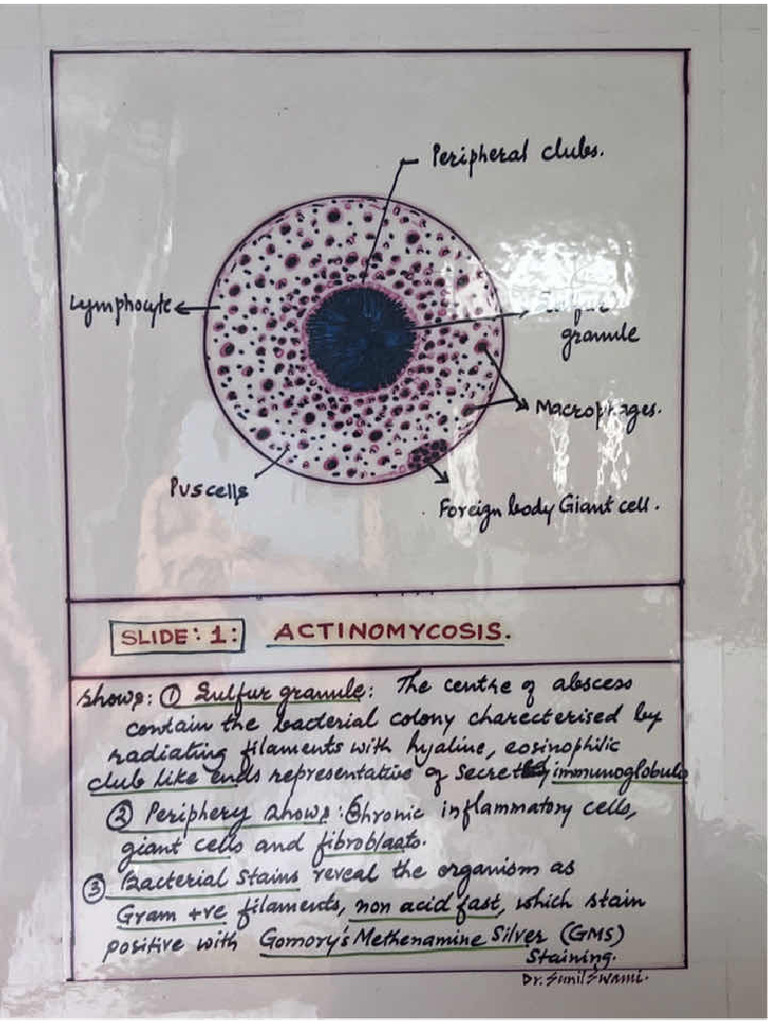 Peripheral clubs.
Lymphocyte
Sulfur
granule
Macrophages.
Pus cells
Foreign body Giant cell.
SLIDE: 1: ACTINOMYCOSIS.
shows: ① Sulfur granule: The centre of abscess
contain the bacterial colony charecterised by
radiating filaments with hyaline, eosinophilic
club like ends representative of secreted immunoglobuls
② Periphery shows: Chronic inflammatory cells,
giant cells and fibroblasts.
③ Bacterial Stains reveal the organism as
Gram +ve filaments, non acid fast, which stain
positive with Gomory's Methenamine Silver (GMS)
Staining.
Dr. Sunil Swami.